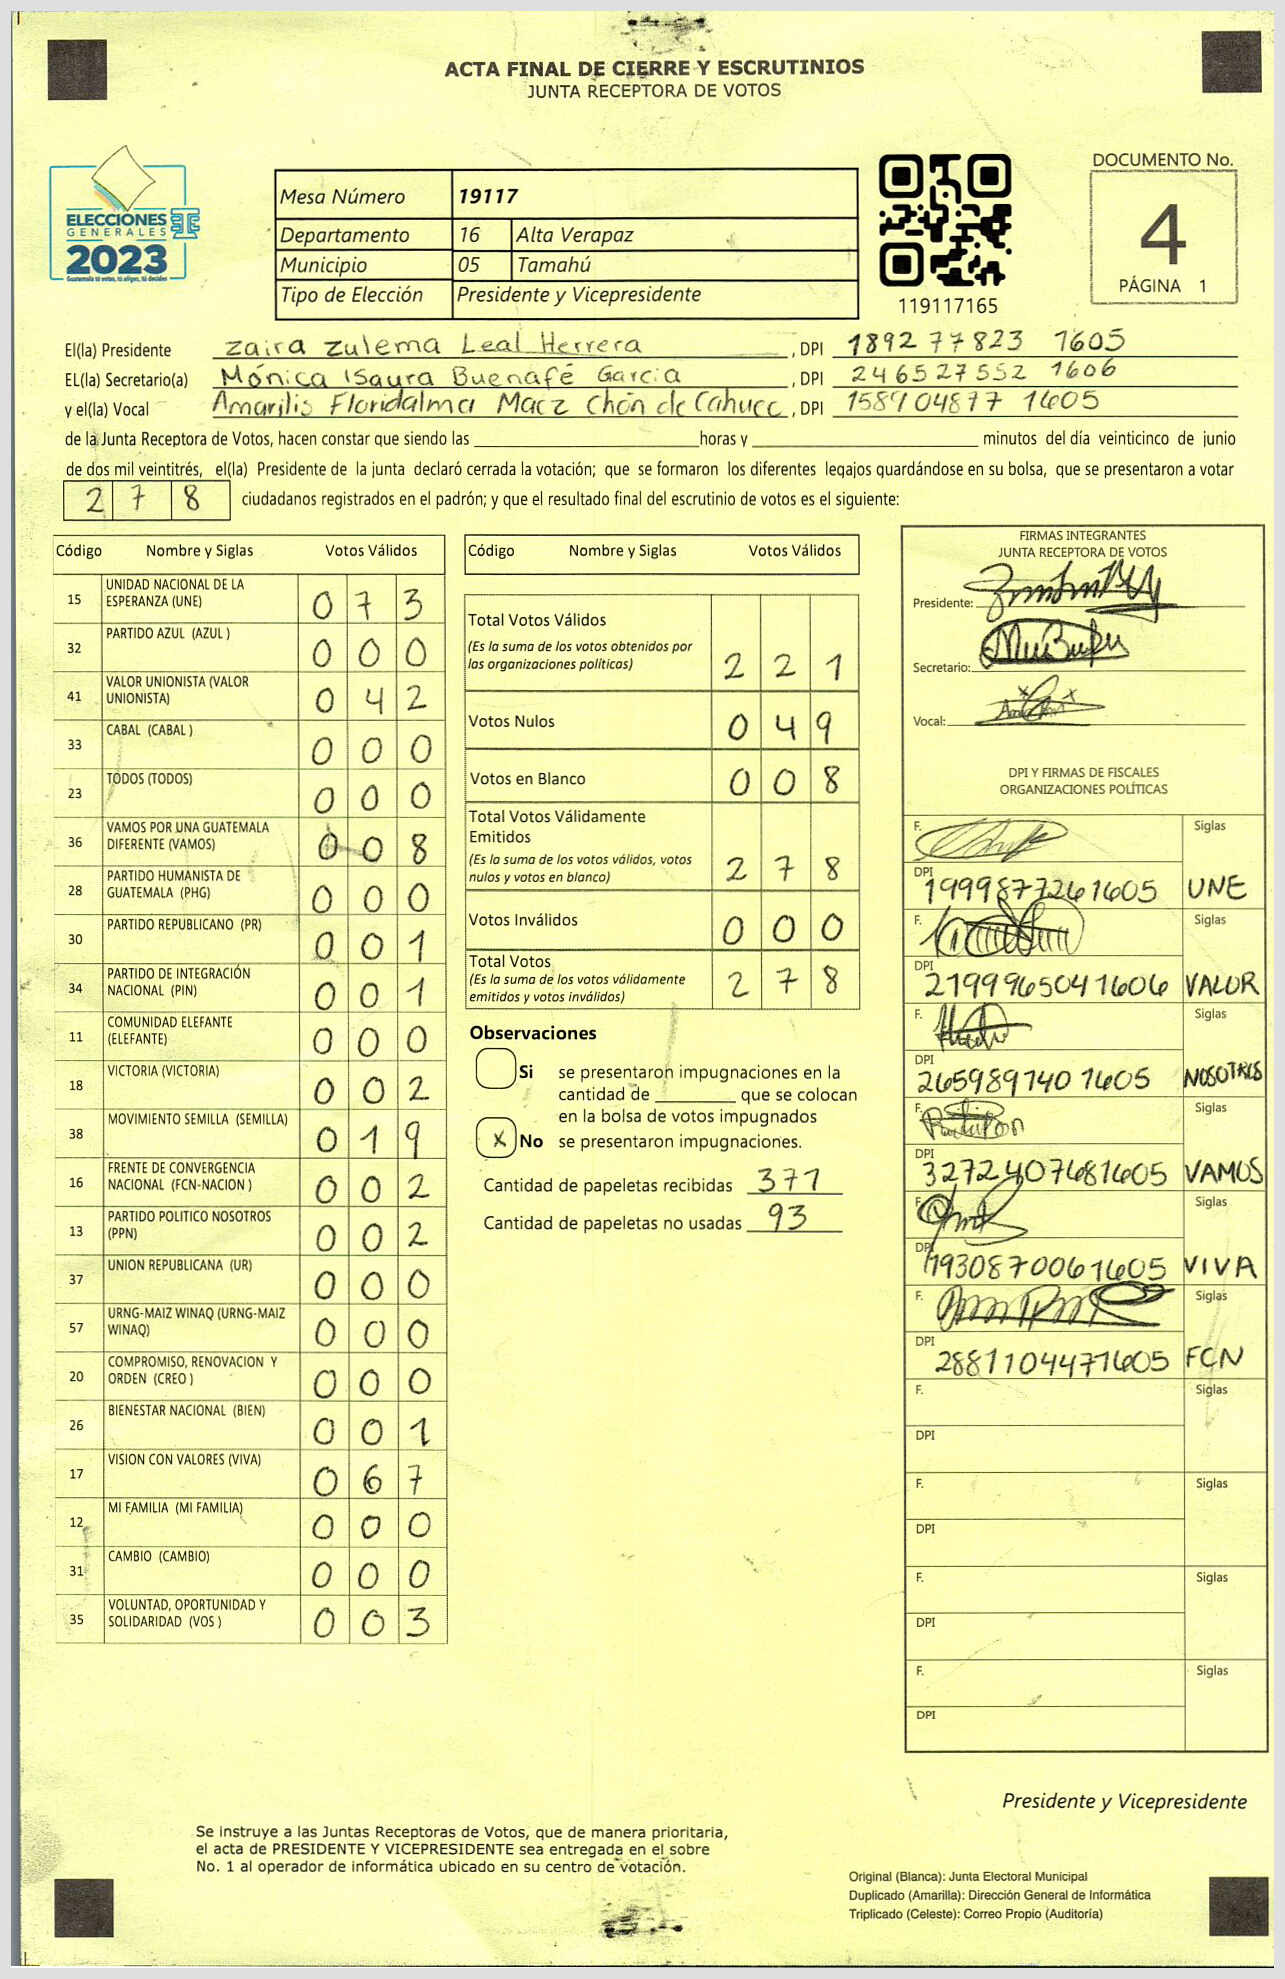 ACTA FINAL DE CIERRE Y ESCRUTINIOS
JUNTA RECEPTORA DE VOTOS
ELECCIONES
GENERALES
2023
Guatemala tú votas, tú eliges, tú decides
Mesa Número 19117
Departamento 16 Alta Verapaz
Municipio 05 Tamahú
Tipo de Elección Presidente y Vicepresidente
119117165
DOCUMENTO No.
4
PÁGINA 1
El(la) Presidente Zaira Zulema Leal Herrera , DPI 1892 77823 1605
EL(la) Secretario(a) Mónica Isaura Buenafé García , DPI 246527552 1606
y el(la) Vocal Amarilis Floridalma Macz Chón de Cahuec , DPI 158904877 1605
de la Junta Receptora de Votos, hacen constar que siendo las horas y minutos del día veinticinco de junio
de dos mil veintitrés, el(la) Presidente de la junta declaró cerrada la votación; que se formaron los diferentes legajos guardándose en su bolsa, que se presentaron a votar
278 ciudadanos registrados en el padrón; y que el resultado final del escrutinio de votos es el siguiente:
Código Nombre y Siglas Votos Válidos
15 UNIDAD NACIONAL DE LA ESPERANZA (UNE) 073
32 PARTIDO AZUL (AZUL ) 000
41 VALOR UNIONISTA (VALOR UNIONISTA) 042
33 CABAL (CABAL ) 000
23 TODOS (TODOS) 000
36 VAMOS POR UNA GUATEMALA DIFERENTE (VAMOS) 008
28 PARTIDO HUMANISTA DE GUATEMALA (PHG) 000
30 PARTIDO REPUBLICANO (PR) 001
34 PARTIDO DE INTEGRACIÓN NACIONAL (PIN) 001
11 COMUNIDAD ELEFANTE (ELEFANTE) 000
18 VICTORIA (VICTORIA) 002
38 MOVIMIENTO SEMILLA (SEMILLA) 019
16 FRENTE DE CONVERGENCIA NACIONAL (FCN-NACION ) 002
13 PARTIDO POLITICO NOSOTROS (PPN) 002
37 UNION REPUBLICANA (UR) 000
57 URNG-MAIZ WINAQ (URNG-MAIZ WINAQ) 000
20 COMPROMISO, RENOVACION Y ORDEN (CREO ) 000
26 BIENESTAR NACIONAL (BIEN) 001
17 VISION CON VALORES (VIVA) 067
12 MI FAMILIA (MI FAMILIA) 000
31 CAMBIO (CAMBIO) 000
35 VOLUNTAD, OPORTUNIDAD Y SOLIDARIDAD (VOS ) 003
Código Nombre y Siglas Votos Válidos
Total Votos Válidos
(Es la suma de los votos obtenidos por
las organizaciones políticas) 221
Votos Nulos 049
Votos en Blanco 008
Total Votos Válidamente
Emitidos
(Es la suma de los votos válidos, votos
nulos y votos en blanco) 278
Votos Inválidos 000
Total Votos
(Es la suma de los votos válidamente
emitidos y votos inválidos) 278
Observaciones
Si se presentaron impugnaciones en la
cantidad de que se colocan
en la bolsa de votos impugnados
x No se presentaron impugnaciones.
Cantidad de papeletas recibidas 371
Cantidad de papeletas no usadas 93
FIRMAS INTEGRANTES
JUNTA RECEPTORA DE VOTOS
Presidente:
Secretario:
Vocal:
DPI Y FIRMAS DE FISCALES
ORGANIZACIONES POLÍTICAS
F. Siglas
DPI 1999877261605 UNE
F. Siglas
DPI 2199965041606 VALOR
F. Siglas
DPI 2659891401605 NOSOTROS
F. Siglas
DPI 3272407681605 VAMOS
F. Siglas
DPI 1930870061605 VIVA
F. Siglas
DPI 2881104471605 FCN
F. Siglas
DPI
F. Siglas
DPI
F. Siglas
DPI
F. Siglas
DPI
Presidente y Vicepresidente
Se instruye a las Juntas Receptoras de Votos, que de manera prioritaria,
el acta de PRESIDENTE Y VICEPRESIDENTE sea entregada en el sobre
No. 1 al operador de informática ubicado en su centro de votación.
Original (Blanca): Junta Electoral Municipal
Duplicado (Amarilla): Dirección General de Informática
Triplicado (Celeste): Correo Propio (Auditoría)